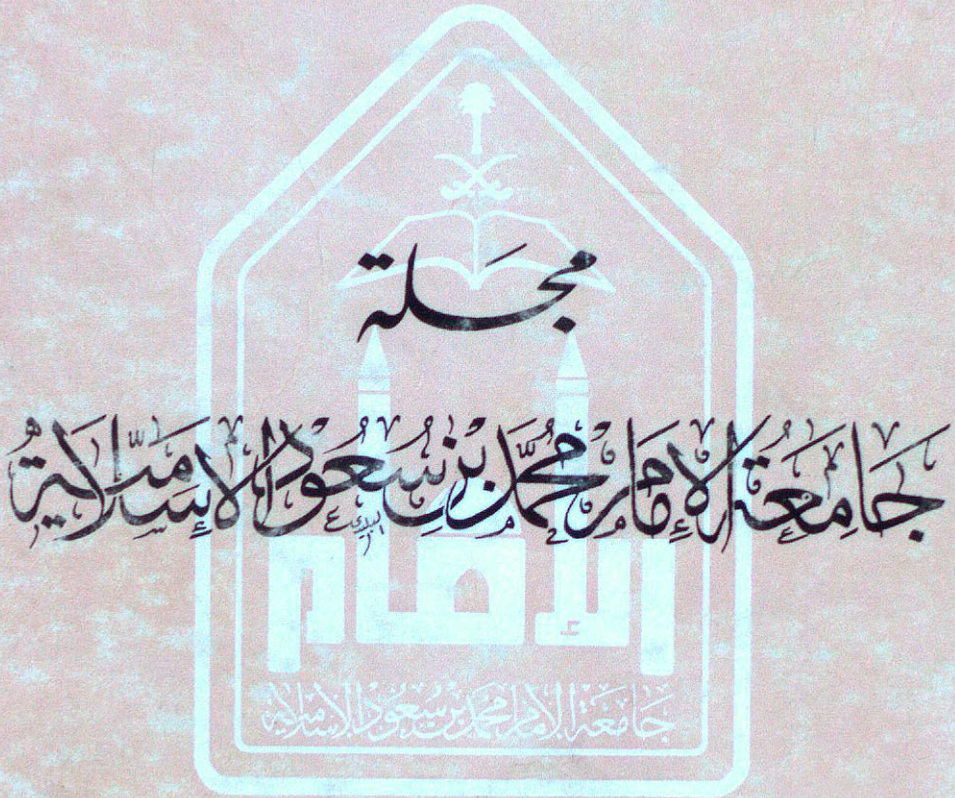 مجلة
جامعة الإمام محمد بن سعود الإسلامية
الإمام
جامعة الإمام محمد بن سعود الإسلامية